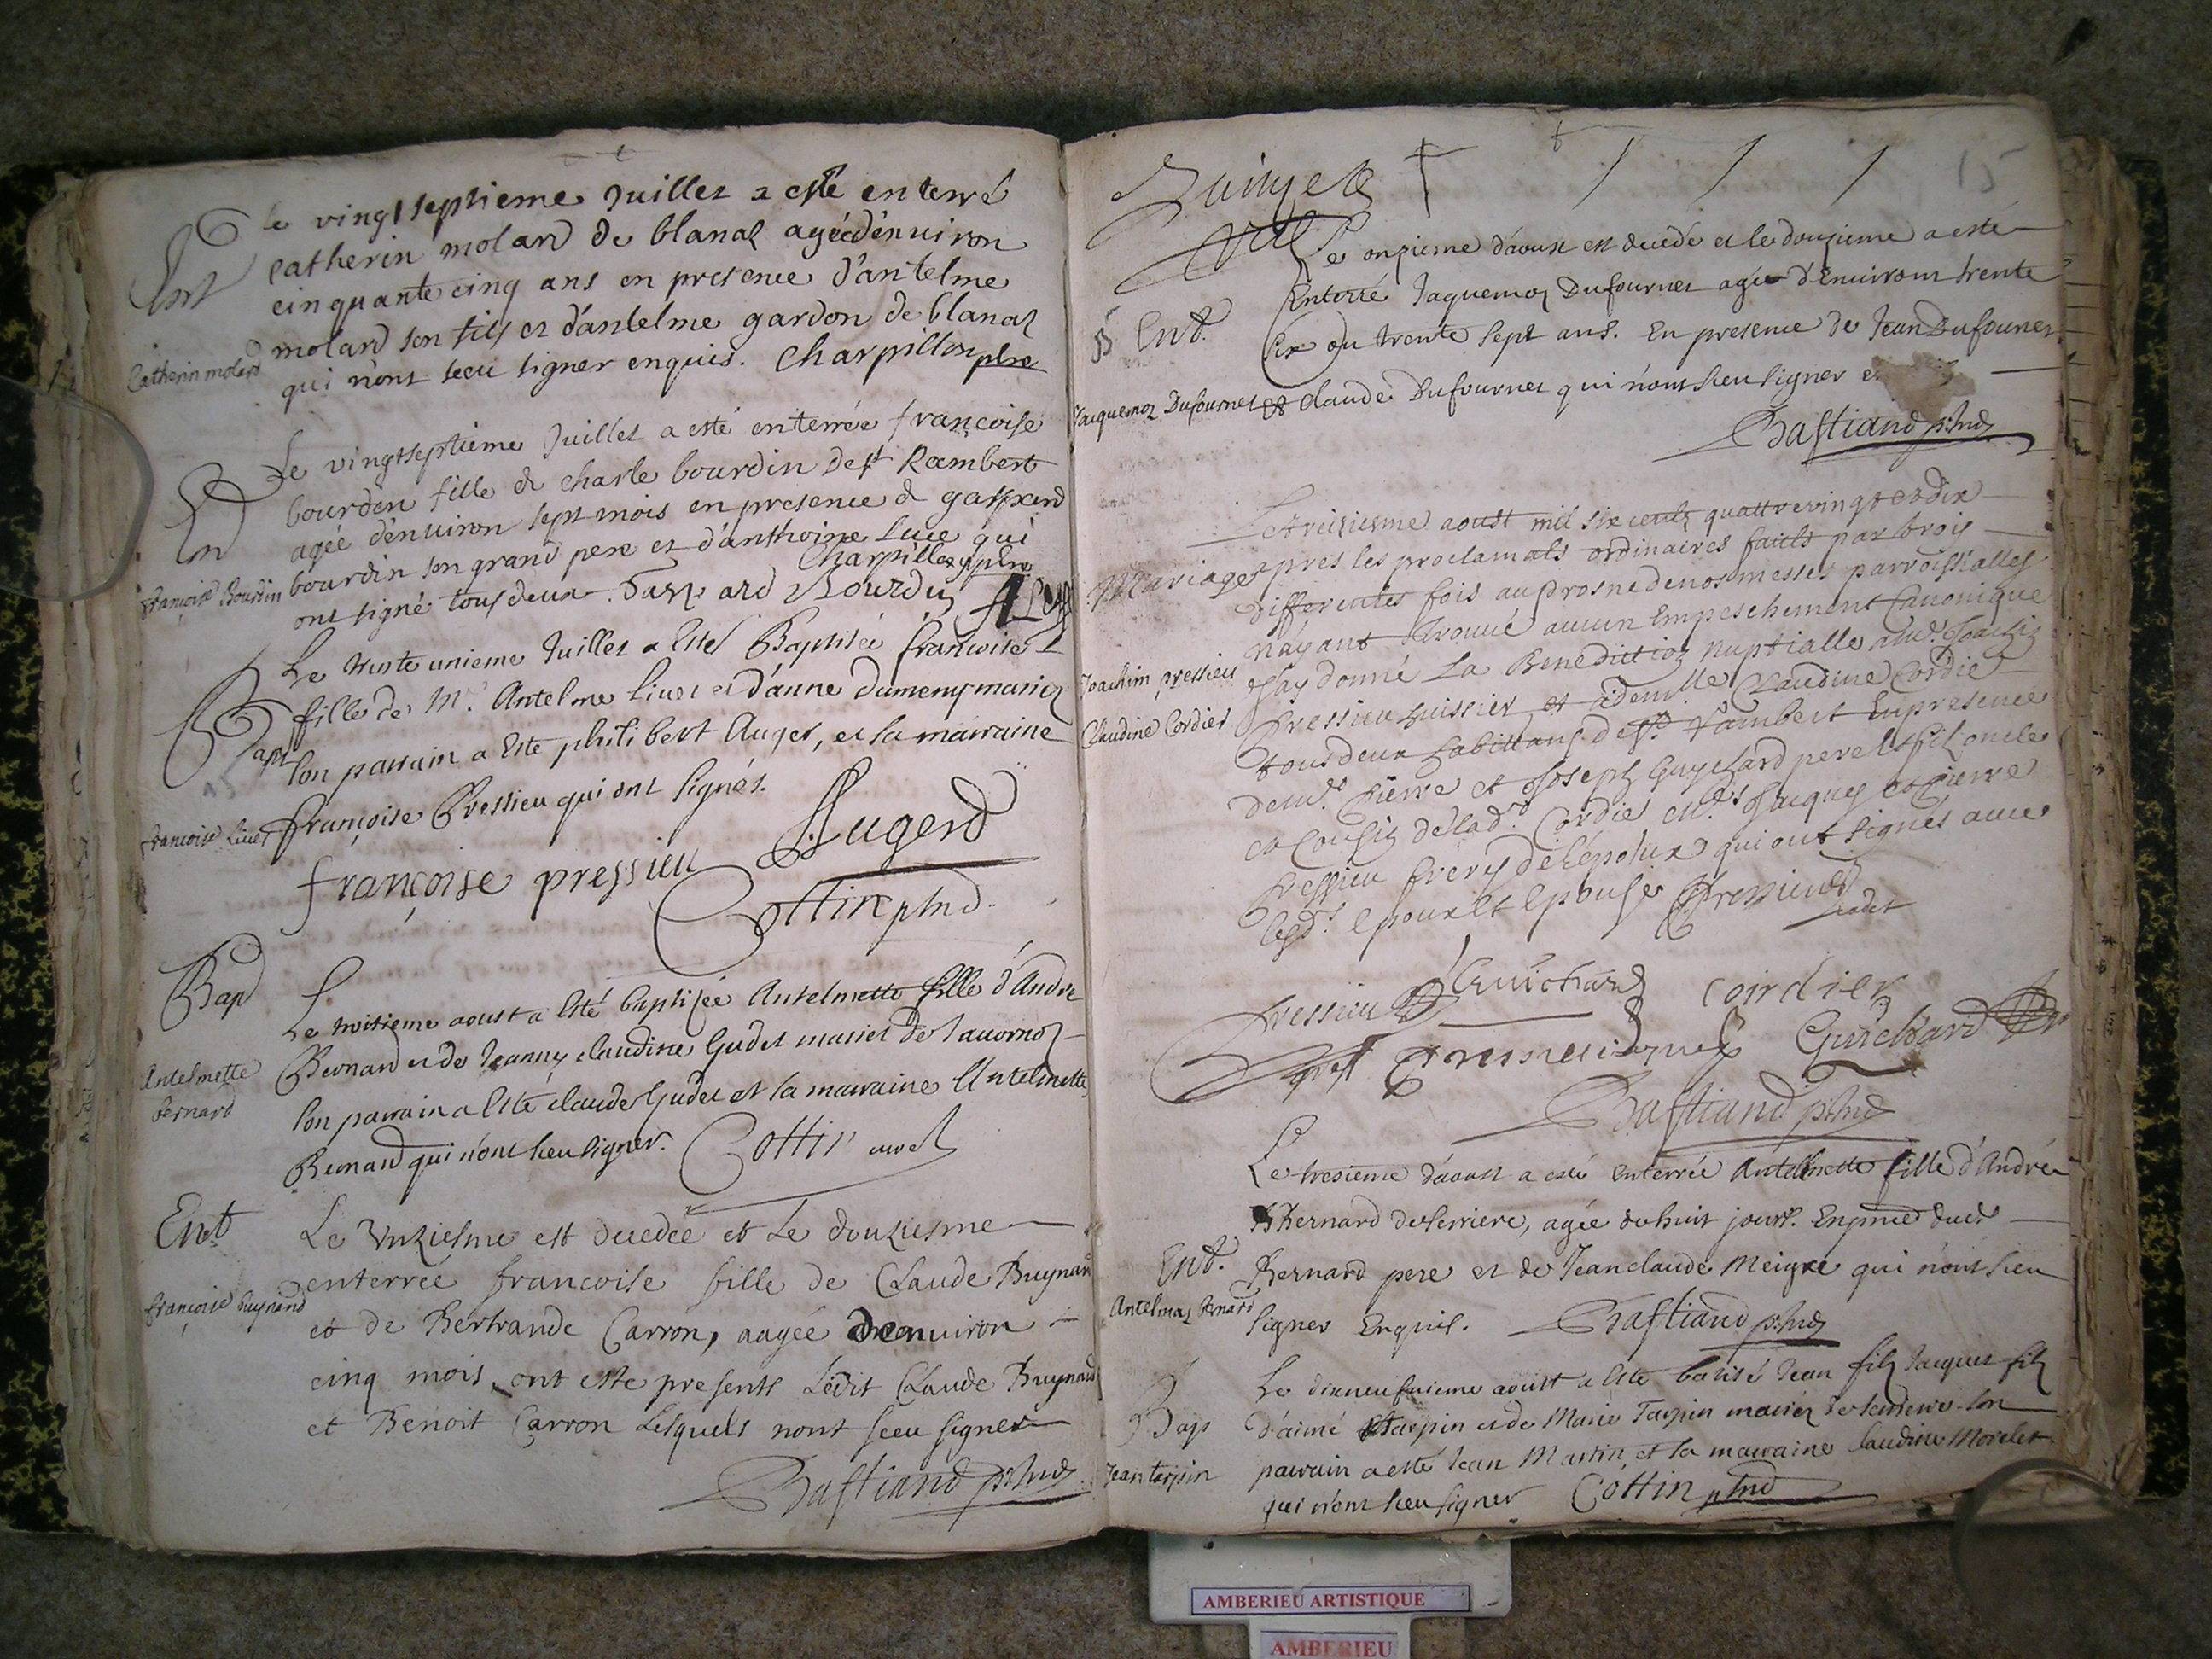 Ent
Le vingtseptieme Juillet a esté enterré
catherin molard de blanaz agéé d'enuiron
cinquante cinq ans en presence d'antelme
molard son fils et d'antelme gardon de blanaz
Catherin molard
qui n'ont sceu signer enquis. Charpillon ptre
Le vingtseptieme Juillet a esté enterrée francoise
bourdin fille de charle bourdin de st Rambert
agée d'enuiron sept mois en presence de gaspard
bourdin son grand pere et d'anthoine Luce qui
françoise Bourdin
Charpillon ptre
ont signé tous deux. Gaspard Bourdin
Le trente unieme Juillet a esté Baptisée francoise
fille de Mr. Antelme liuet et d'anne dumeny mariez
Bapt
son parrain a este philibert Auger, et la marraine
françoise Pressieu qui ont signés.
francoise liuet
Augerd
françoise pressieu
Cottin
Bap
Le troisieme aoust a esté baptisée Antelmette fille d'Andre
Bernard et de Jeanne claudine Gudet mariez
Antelmette
bernard
son parrain a esté claude Gudet et la marraine Antelmette
Bernard qui n'ont sceu signer. Cottin
Ent
Le Vnziesme est decedée et Le douziesme
enterrée francoise fille de Claude Buynand
françoise Buynand
et de Bertrande Carron, aagée denuiron
cinq mois, ont este presents Ledit Claude Buynand
et Benoit Carron Lesquels nont sceu signer
Bastiand
15
Le onzieme d'aoust est decedé et le douzieme a esté
Enterré Jaquemoz Dufournet agé d'Enuiron trente
Ent.
six ou trente sept ans. En presence de Jean Dufournet
Jacquemoz Dufournet
et claude Dufournet qui n'ont sceu signer
Bastiand
Le treiziesme aoust mil six cents quattre vingt et dix
Mariage
apres les proclamats ordinaires faicts par trois
differentes fois au prosne de nos messes parroissialles
n'ayant trouué aucun Empeschement Canonique
Joachim pressieu
J'ay donné La Benediction nuptialle a Mr. Joachin
Claudine Cordier
Pressieu huissier et a demlle Claudine Cordié
tous deux habittans de St Rambert En presence
de Mrs. Pierre et Joseph Guychard pere et fils oncle
et Cousin de lad. Cordié Mrs Jacques et pierre
Pressieu freres de l'epoux qui ont signés auec
lesd. epoux et epouse Pressieu
cadet
Pressieu Guichard cordier
Guichard
Bastiand
Le tresieme d'aoust a esté enterrée Antelmette fille d'André
Bernard de serriere, agée de huit jours. En pnce dud
Ent.
Bernard pere et de Jean claude Meigre qui n'ont sceu
Antelmaz bernard
signer Enquis. Bastiand
Le dixneufuieme aoust a esté batisé Jean fils
Bap
d'aimé Tarpin et de Marie Tarpin mariez de serriere son
parrain a esté Jean Martin, et la marraine claudine Morelet
Jean tarpin
qui n'ont sceu signer Cottin
AMBERIEU ARTISTIQUE
AMBERIEU